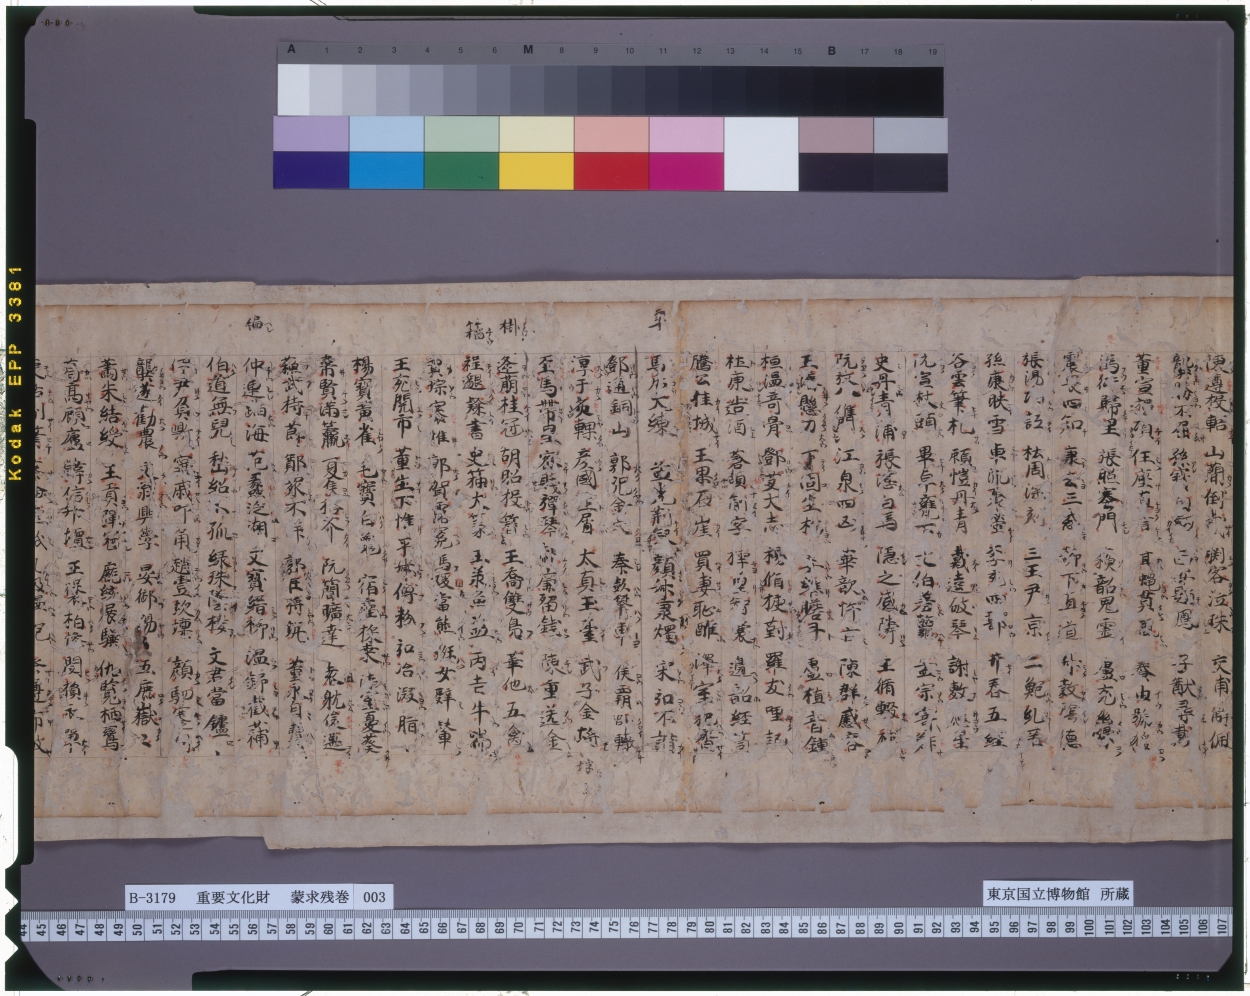 Kodak EPP 3381
A 1 2 3 4 5 6 M 8 9 10 11 12 13 14 15 B 17 18 19
陳遵投轄 山簡倒載 淵客泣珠 交甫解佩
不屈 子猷尋戴
董宣強項 任座直言 養由號猿
馮衍歸里 張昭塞門 蘇韶鬼靈 盧充幽婚
震畏四知 秉去三惑 柳下直道 叔敖陰德
張湯巧詆 杜周深刻 三王尹京 二鮑糺慝
孫康映雪 車胤聚螢 李充四部 井春五經
谷雲筆札 顧愷丹青 戴逵破琴 謝敷應星
阮宣杖頭 畢卓甕下 文伯羞鼈 孟宗寄鮓
史丹青蒲 張湛白馬 隱之感隣 王脩輟社
阮放八雋 江泉四凶 華歆忤旨 陳群蹙容
王濬懸刀 丁固生松 姜維膽斗 盧植音鐘
桓溫奇骨 鄧艾大志 楊脩捷對 羅友默記
杜康造酒 蒼頡制字 樗里智囊 邊韶經笥
滕公佳城 王果石崖 買妻恥醮 澤室犯齋
馬后大練 孟光荊釵 顏叔秉燭 宋弘不諧
鄧通銅山 郭況金穴 秦彭攀車 侯霸臥轍
淳于炙輠 彥國吐屑 太真玉臺 武子金埒
巫馬戴星 宓賤彈琴 郝廉留錢 雷重送金
逢萌桂冠 胡昭投簪 王喬雙鳧 華他五禽
掛
程邈隸書 史籀大篆 王承魚盜 丙吉牛喘
籀
賈琮褰帷 郭賀露冕 馮媛當熊 班女辭輦
王充閱市 董生下帷 平叔傅粉 弘治凝脂
楊寶黃雀 毛寶白龜 宿瘤採桑 漆室憂葵
韋賢滿籯 夏侯拾芥 阮簡曠達 袁耽俊邁
蘇武持節 鄭衆不拜 郭巨將坑 董永自賣
仲連蹈海 范蠡泛湖 文寶緝柳 溫舒截蒲
伯道無兒 嵆紹不孤 綠珠墜樓 文君當鑪
伊尹負鼎 甯戚叩角 趙壹坎壈 顏駟蹇剝
龔遂勸農 文翁興學 晏御揚々 五鹿嶽々
蕭朱結綬 王貢彈冠 龐統展驥 仇覽栖鸞
葛亮顧廬 韓信升壇 王裒柏慘 閔損衣單
B-3179 重要文化財 蒙求残巻 003
東京国立博物館 所蔵
44 45 46 47 48 49 50 51 52 53 54 55 56 57 58 59 60 61 62 63 64 65 66 67 68 69 70 71 72 73 74 75 76 77 78 79 80 81 82 83 84 85 86 87 88 89 90 91 92 93 94 95 96 97 98 99 100 101 102 103 104 105 106 107